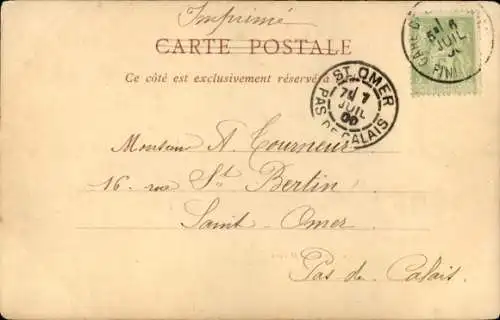 Imprimé
CARTE POSTALE
Ce côté est exclusivement réservé à
GARE
5E 6
JUIL
FINI
ST OMER
7E 7
JUIL
00
PAS DE CALAIS
Monsieur A. Tourneur
16 rue St Bertin
Saint-Omer
Pas de Calais.